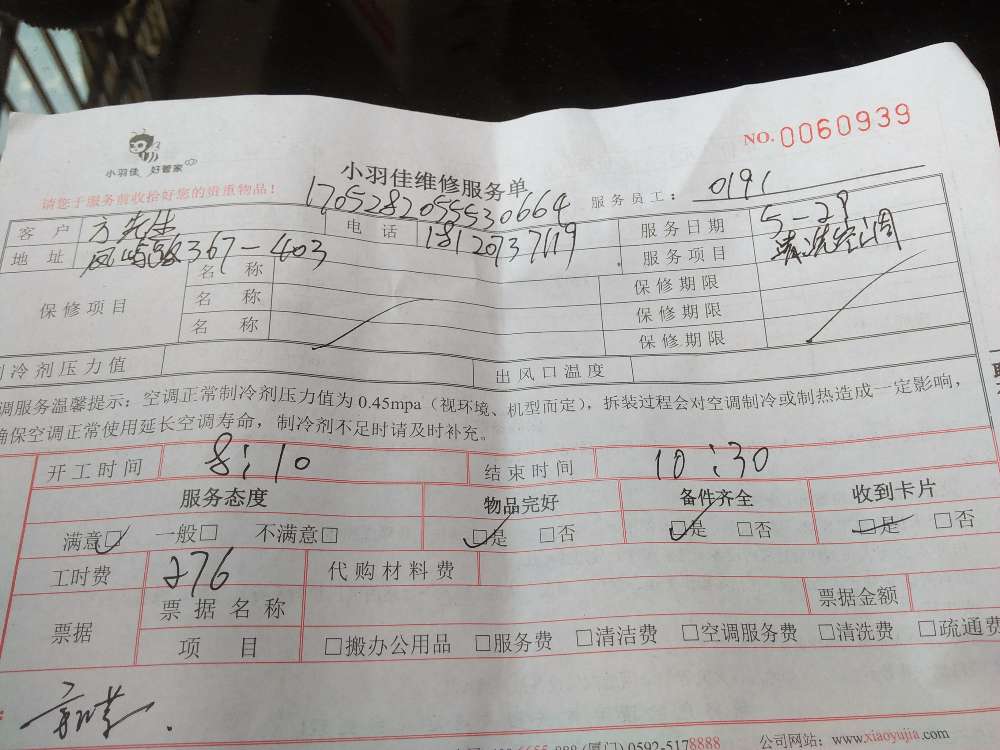 NO. 0060939
小羽佳 好管家
小羽佳维修服务单
请您于服务前收拾好您的贵重物品！
17052820555530664
服务员工： 0191
客 户 方先生 电 话 18120737119 服务日期 5-29
地 址 367-403 服务项目 清洗空调
保修项目 名 称 保修期限
名 称 保修期限
名 称 保修期限
冷剂压力值 出风口温度
调服务温馨提示：空调正常制冷剂压力值为 0.45mpa（视环境、机型而定），拆装过程会对空调制冷或制热造成一定影响，
确保空调正常使用延长空调寿命，制冷剂不足时请及时补充。
开工时间 8:10 结束时间 10:30
服务态度 物品完好 备件齐全 收到卡片
满意□ 一般□ 不满意□ □是 □否 □是 □否 □是 □否
工时费 276 代购材料费
票据 票据名称 票据金额
项 目 □搬办公用品 □服务费 □清洁费 □空调服务费 □清洗费 □疏通费
(厦门) 0592-5178888 公司网站：www.xiaoyujia.com